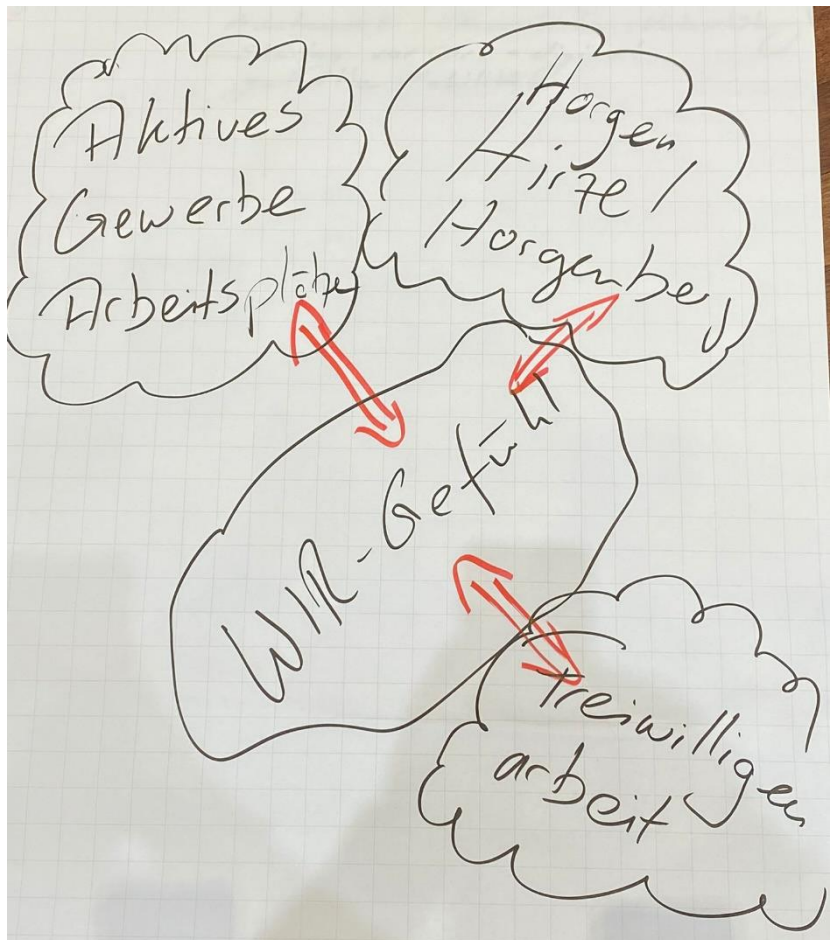 Aktives
Gewerbe
Arbeitsplätze
Horgen
Hirzel
Horgenberg
WIR-Gefühl
Freiwilligen
arbeit